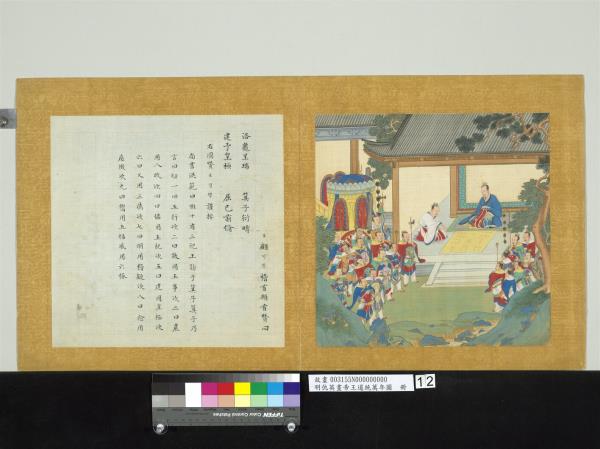 臣顧可學稽首頓首贊曰
洛龜呈瑞 箕子衍疇
建 皇極 屈己
謹按
尚書洪範曰惟十有三祀王訪于箕子箕子乃
言曰初一曰五行次二曰敬用五事次三曰農
用八政次四曰協用五紀次五曰建用皇極次
六曰乂用三德次七曰明用稽疑次八曰念用
庶徵次九曰嚮用五福威用六極
故畫 003155N000000000
明仇英畫帝王道統萬年圖 冊
12
TIFFEN Color Control Patches